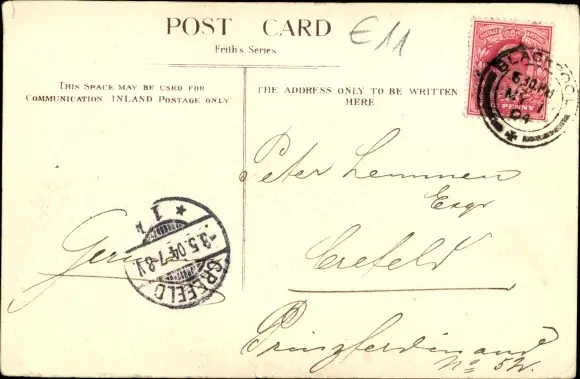 POST CARD
Frith's Series
E11
THIS SPACE MAY BE USED FOR
COMMUNICATION INLAND POSTAGE ONLY
THE ADDRESS ONLY TO BE WRITTEN
HERE.
BLACKPOOL
MY 1
04
PENNY
Peter Lemmen
Esqr
Crefeld
Prinzferdinand
No 52.
CREFELD
3.5.04 7-8V
* 1 k